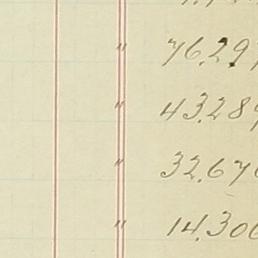 " 76.29
" 43.289
" 32.676
" 14.300